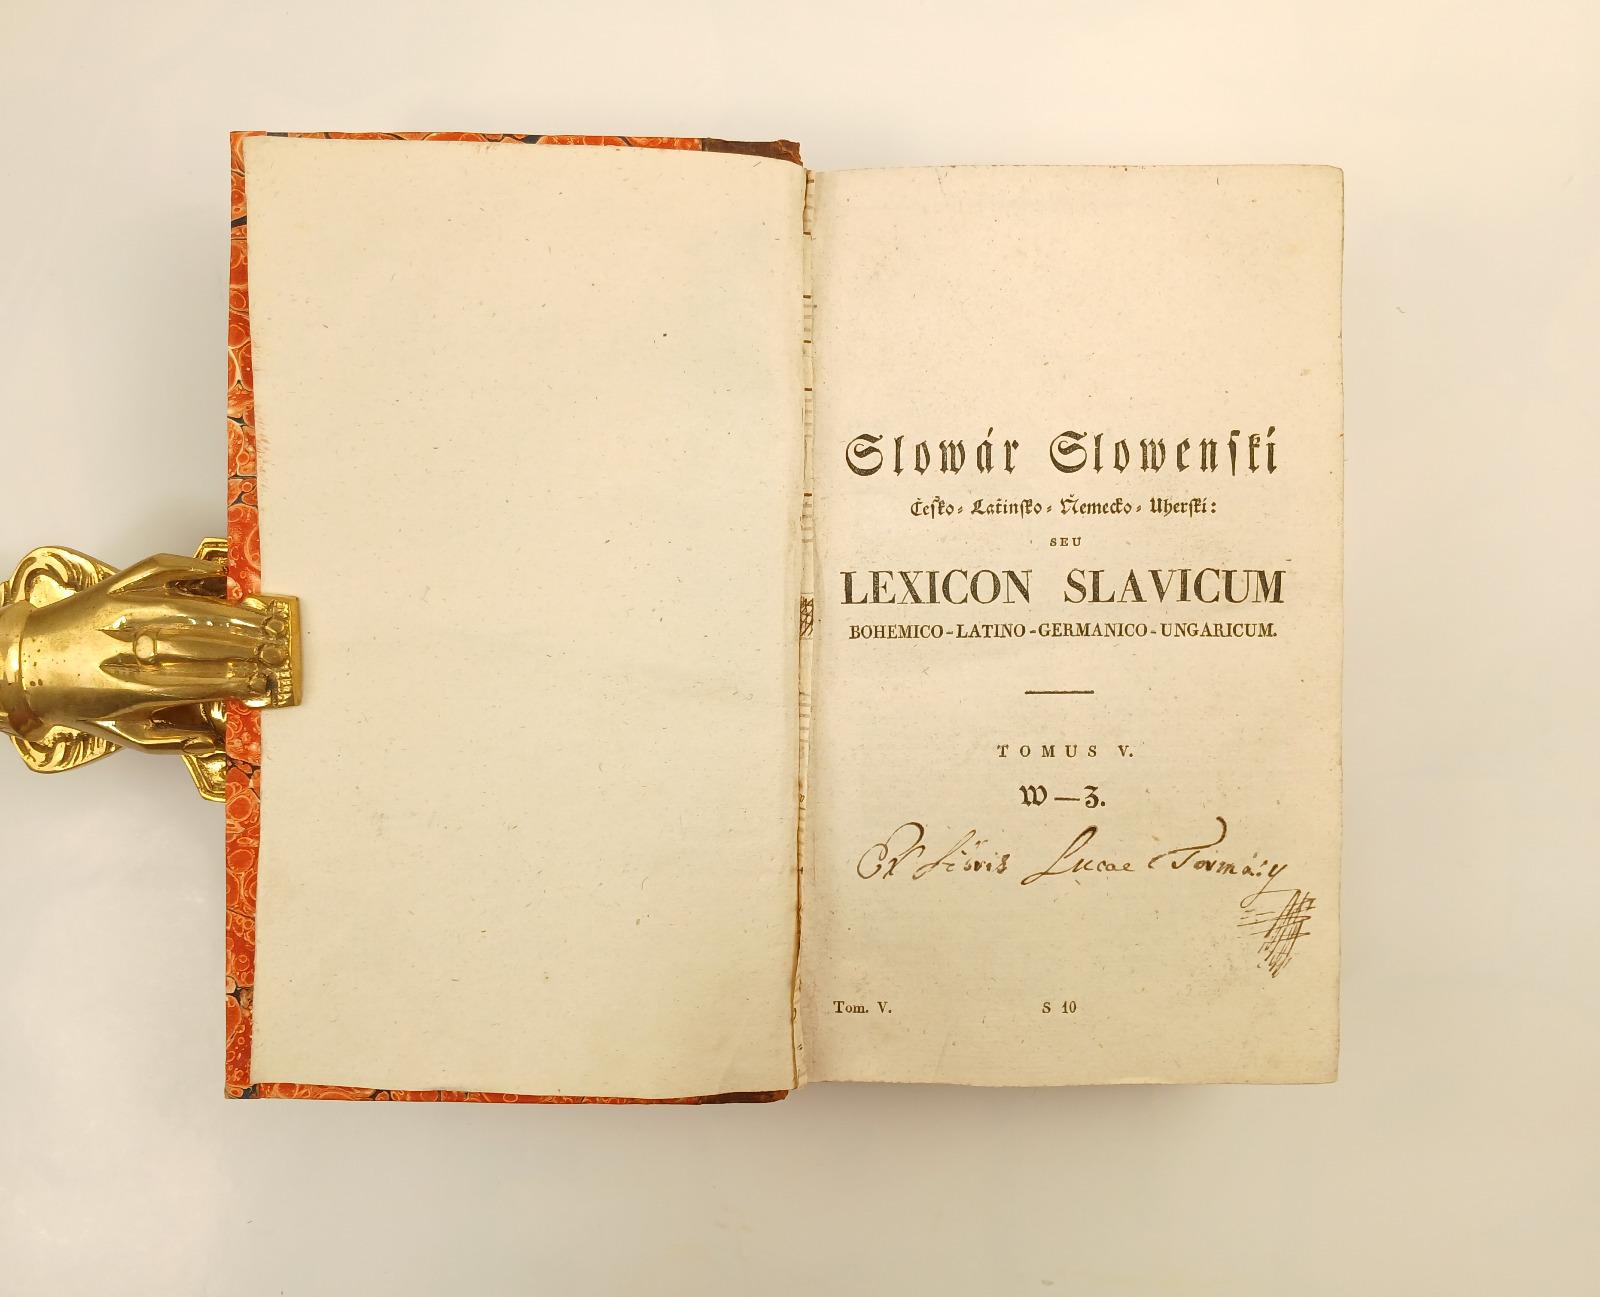 Slowár Slowenskí
Česko-Laťinsko-Ňemecko-Uherskí:
SEU
LEXICON SLAVICUM
BOHEMICO-LATINO-GERMANICO-UNGARICUM.
TOMUS V.
W—Z.
Ex Libris Lucae Tormásy
Tom. V. S 10